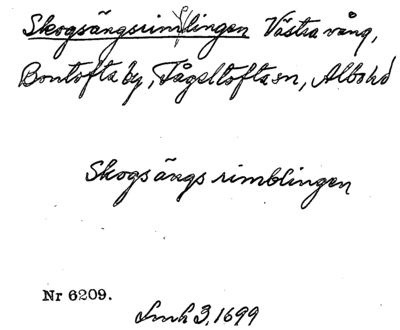 Skogsängsrimlingen Västra vång,
Bontofta by, Fågeltofta sn, Albo hd
Skogsängs rimblingen
Nr 6209.
Lmk 3, 1699